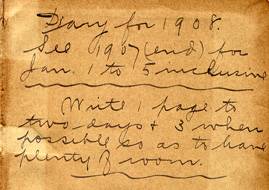 Diary for 1908.
See 1907 (end) for
Jan. 1 to 5 inclusive
Write 1 page to
two days & 3 when
possible so as to have
plenty of room.